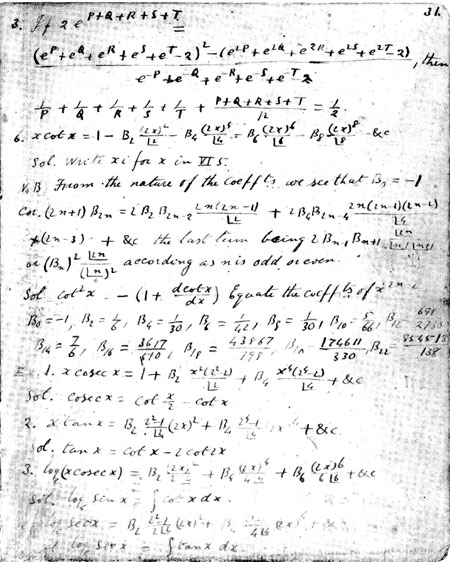 31.
3. If 2 e^{P+Q+R+S+T} =
(e^P + e^Q + e^R + e^S + e^T - 2)^2 - (e^{2P} + e^{2Q} + e^{2R} + e^{2S} + e^{2T} - 2)
e^{-P} + e^{-Q} + e^{-R} + e^{-S} + e^{-T} 2 , then
1/P + 1/Q + 1/R + 1/S + 1/T + (P+Q+R+S+T)/12 = 1/2.
6. x cot x = 1 - B_2 (2x)^2/|2 - B_4 (2x)^4/|4 - B_6 (2x)^6/|6 - B_8 (2x)^8/|8 - &c
Sol. Write xi for x in VI 5.
N.B. From the nature of the coeffts we see that B_0 = -1
Cor. (2n+1) B_{2n} = 2 B_2 B_{2n-2} 2n(2n-1)/|2 + 2 B_4 B_{2n-4} 2n(2n-1)(2n-2)/|4
×(2n-3) + &c the last term being 2 B_{n-1} B_{n+1} |2n/|n-1 |n+1
or (B_n)^2 |2n/(|n)^2 according as n is odd or even.
Sol. cot^2 x = -(1 + d cot x/dx) Equate the coeffts of x^{2n-2}
B_0 = -1, B_2 = 1/6, B_4 = 1/30, B_6 = 1/42, B_8 = 1/30, B_10 = 5/66, B_12 691/2730
B_14 = 7/6, B_16 = 3617/510, B_18 = 43867/798, B_20 = 174611/330, B_22 = 854513/138
Ex. 1. x cosec x = 1 + B_2 x^2(2^2-2)/|2 + B_4 x^4(2^4-2)/|4 + &c
Sol. cosec x = cot x/2 - cot x
2. x tan x = B_2 (2^2-1)/|2 (2x)^2 + B_4 (2^4-1)/|4 (2x)^4 + &c
Sol. tan x = cot x - 2 cot 2x
3. log (x cosec x) = B_2 (2x)^2/2|2 + B_4 (2x)^4/4|4 + B_6 (2x)^6/6|6 + &c
Sol. log sin x = ∫ cot x dx.
log sec x = B_2 (2^2-1)/2|2 (2x)^2 + B_4 /4|4 (2x)^4 + &c
log sec x = ∫ tan x dx